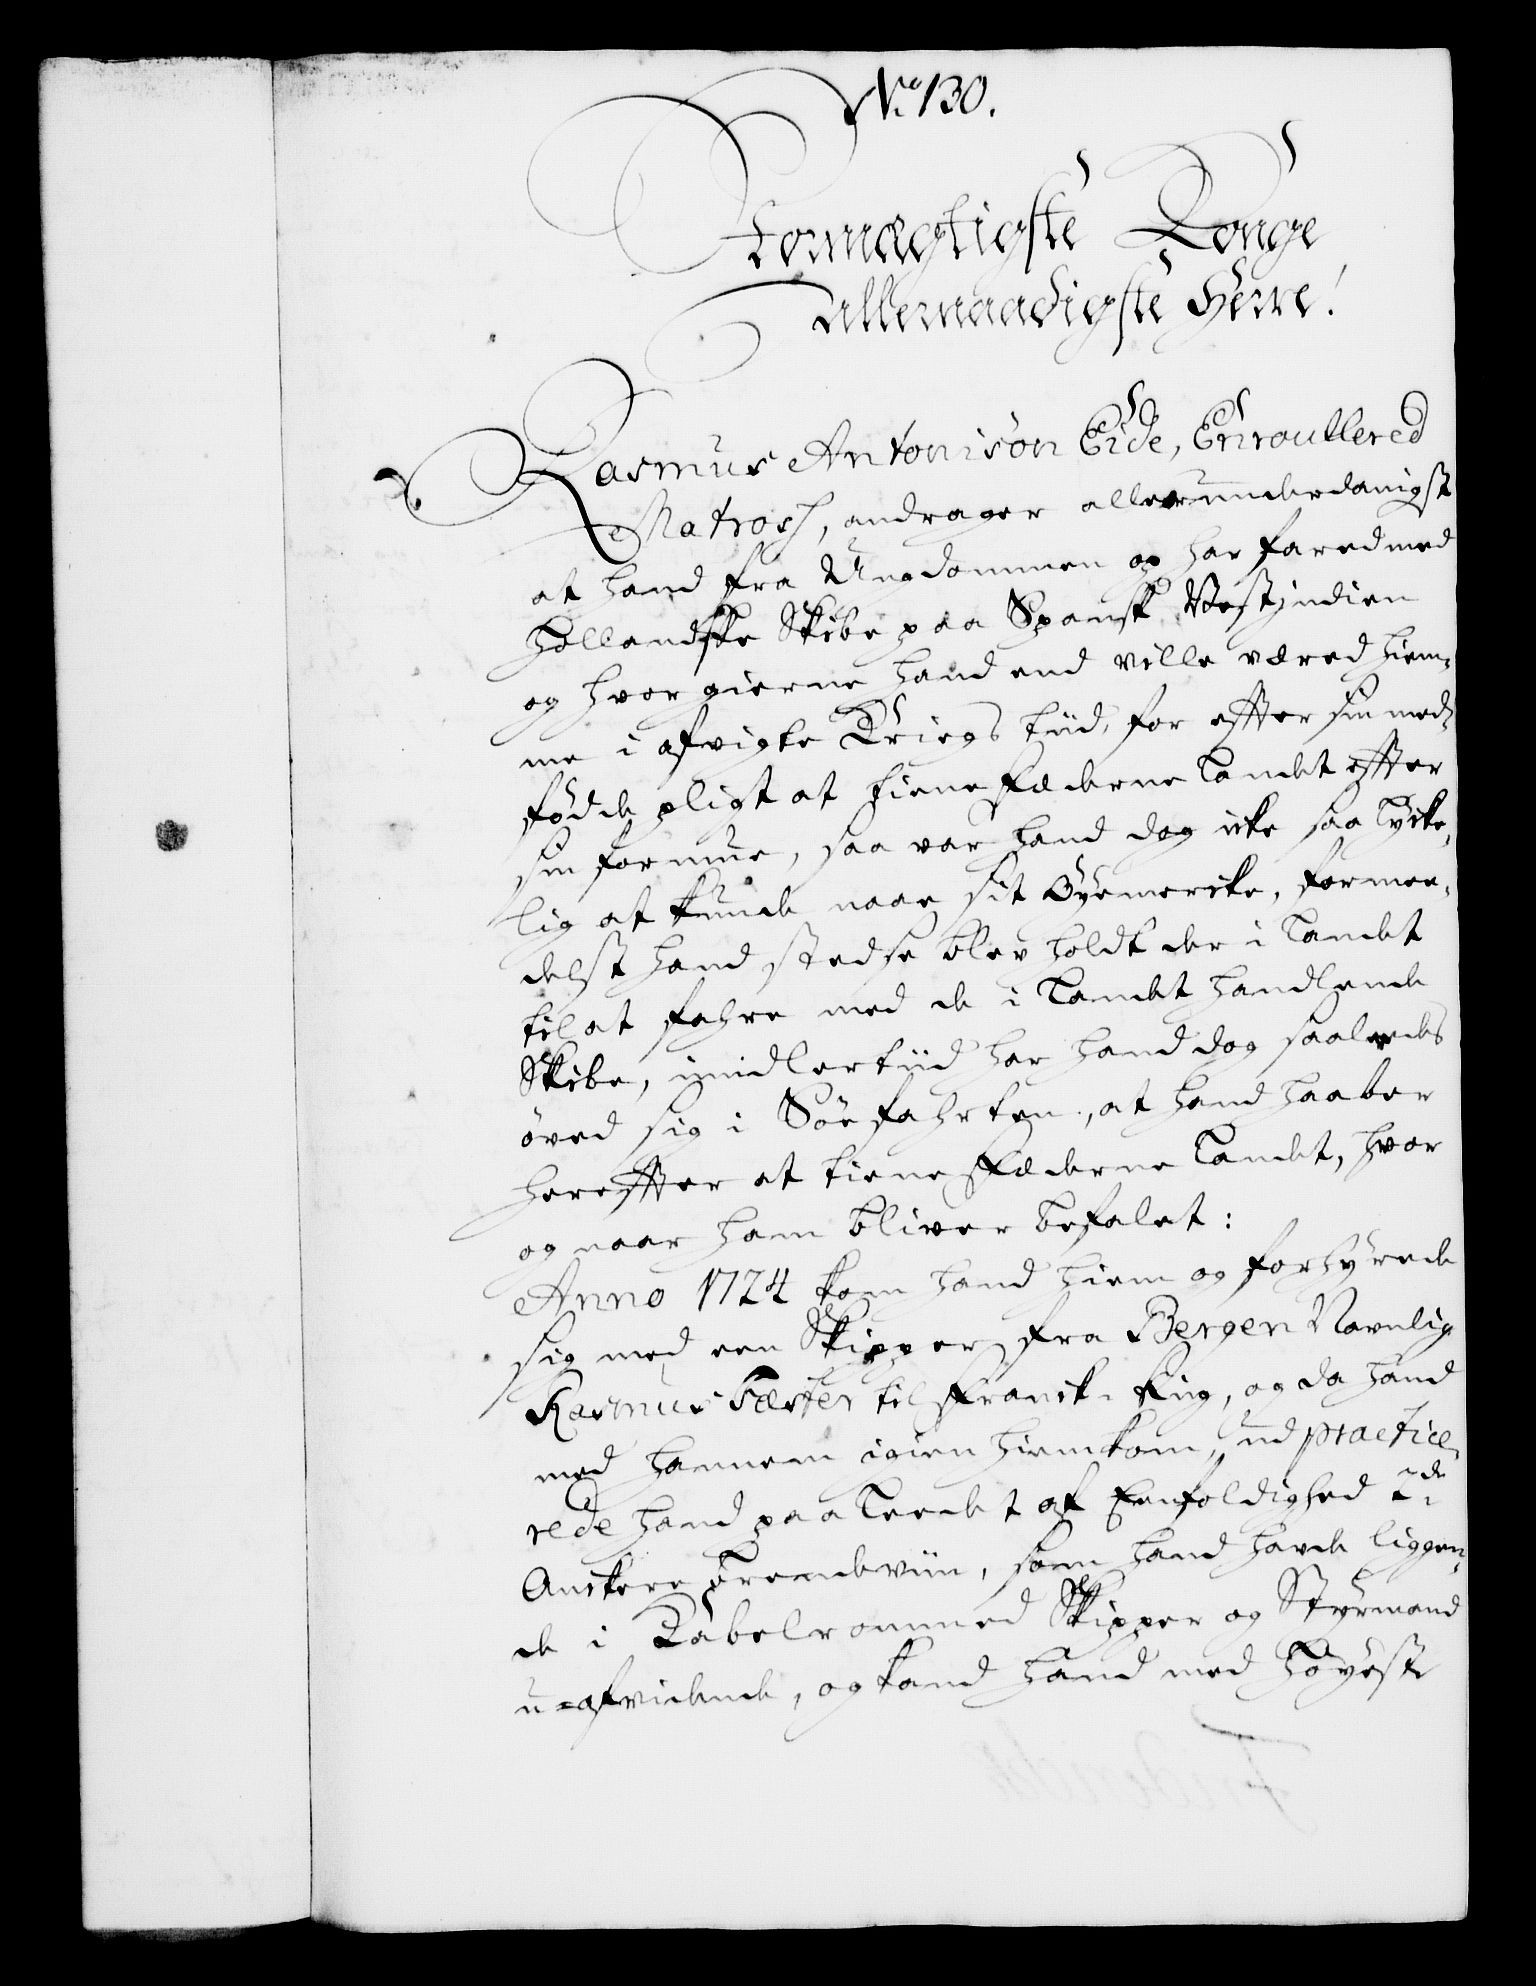 No 130.
Stormægtigste Konge
allernaadigste Herre!
Rasmus Antonisön Eide, Enroullered
Matros, andrager allerunderdanigst
at hand fra Ungdommen op har fared med
Hollandske Skibe paa Spansk Vestjndien
og hvor gierne hand end ville været hiem-
me i afvigte Kriegs tiid, for effter sin med-
fødde pligt at tiene Fæderne Landet effter
sin formue, saa var hand dog icke saa lycke-
lig at kunde naae sit Øyemercke, formee-
delst hand stedse blev holdt der i Landet
til at fahre med de i Landet handlende
Skibe, imidlertiid har hand dog saaledes
öved sig i Söefahrten, at hand haaber
hereffter at tiene Fæderne Landet, hvor
og naar ham bliver befalet:
Anno 1724 kom hand hiem og forhyrede
sig med een Skipper fra Bergen Navnlig
Rasmus Fæster til Franck-Rig, og da hand
med hannem igien hiemkom, ud practice-
rede hand paa Leedet af Eenfoldighed 2de
Anckere Brendeviin, som hand havde liggen-
de i Kabelrommed Skipper og Styrmand
u-afvidende, og kand hand med Høyeste